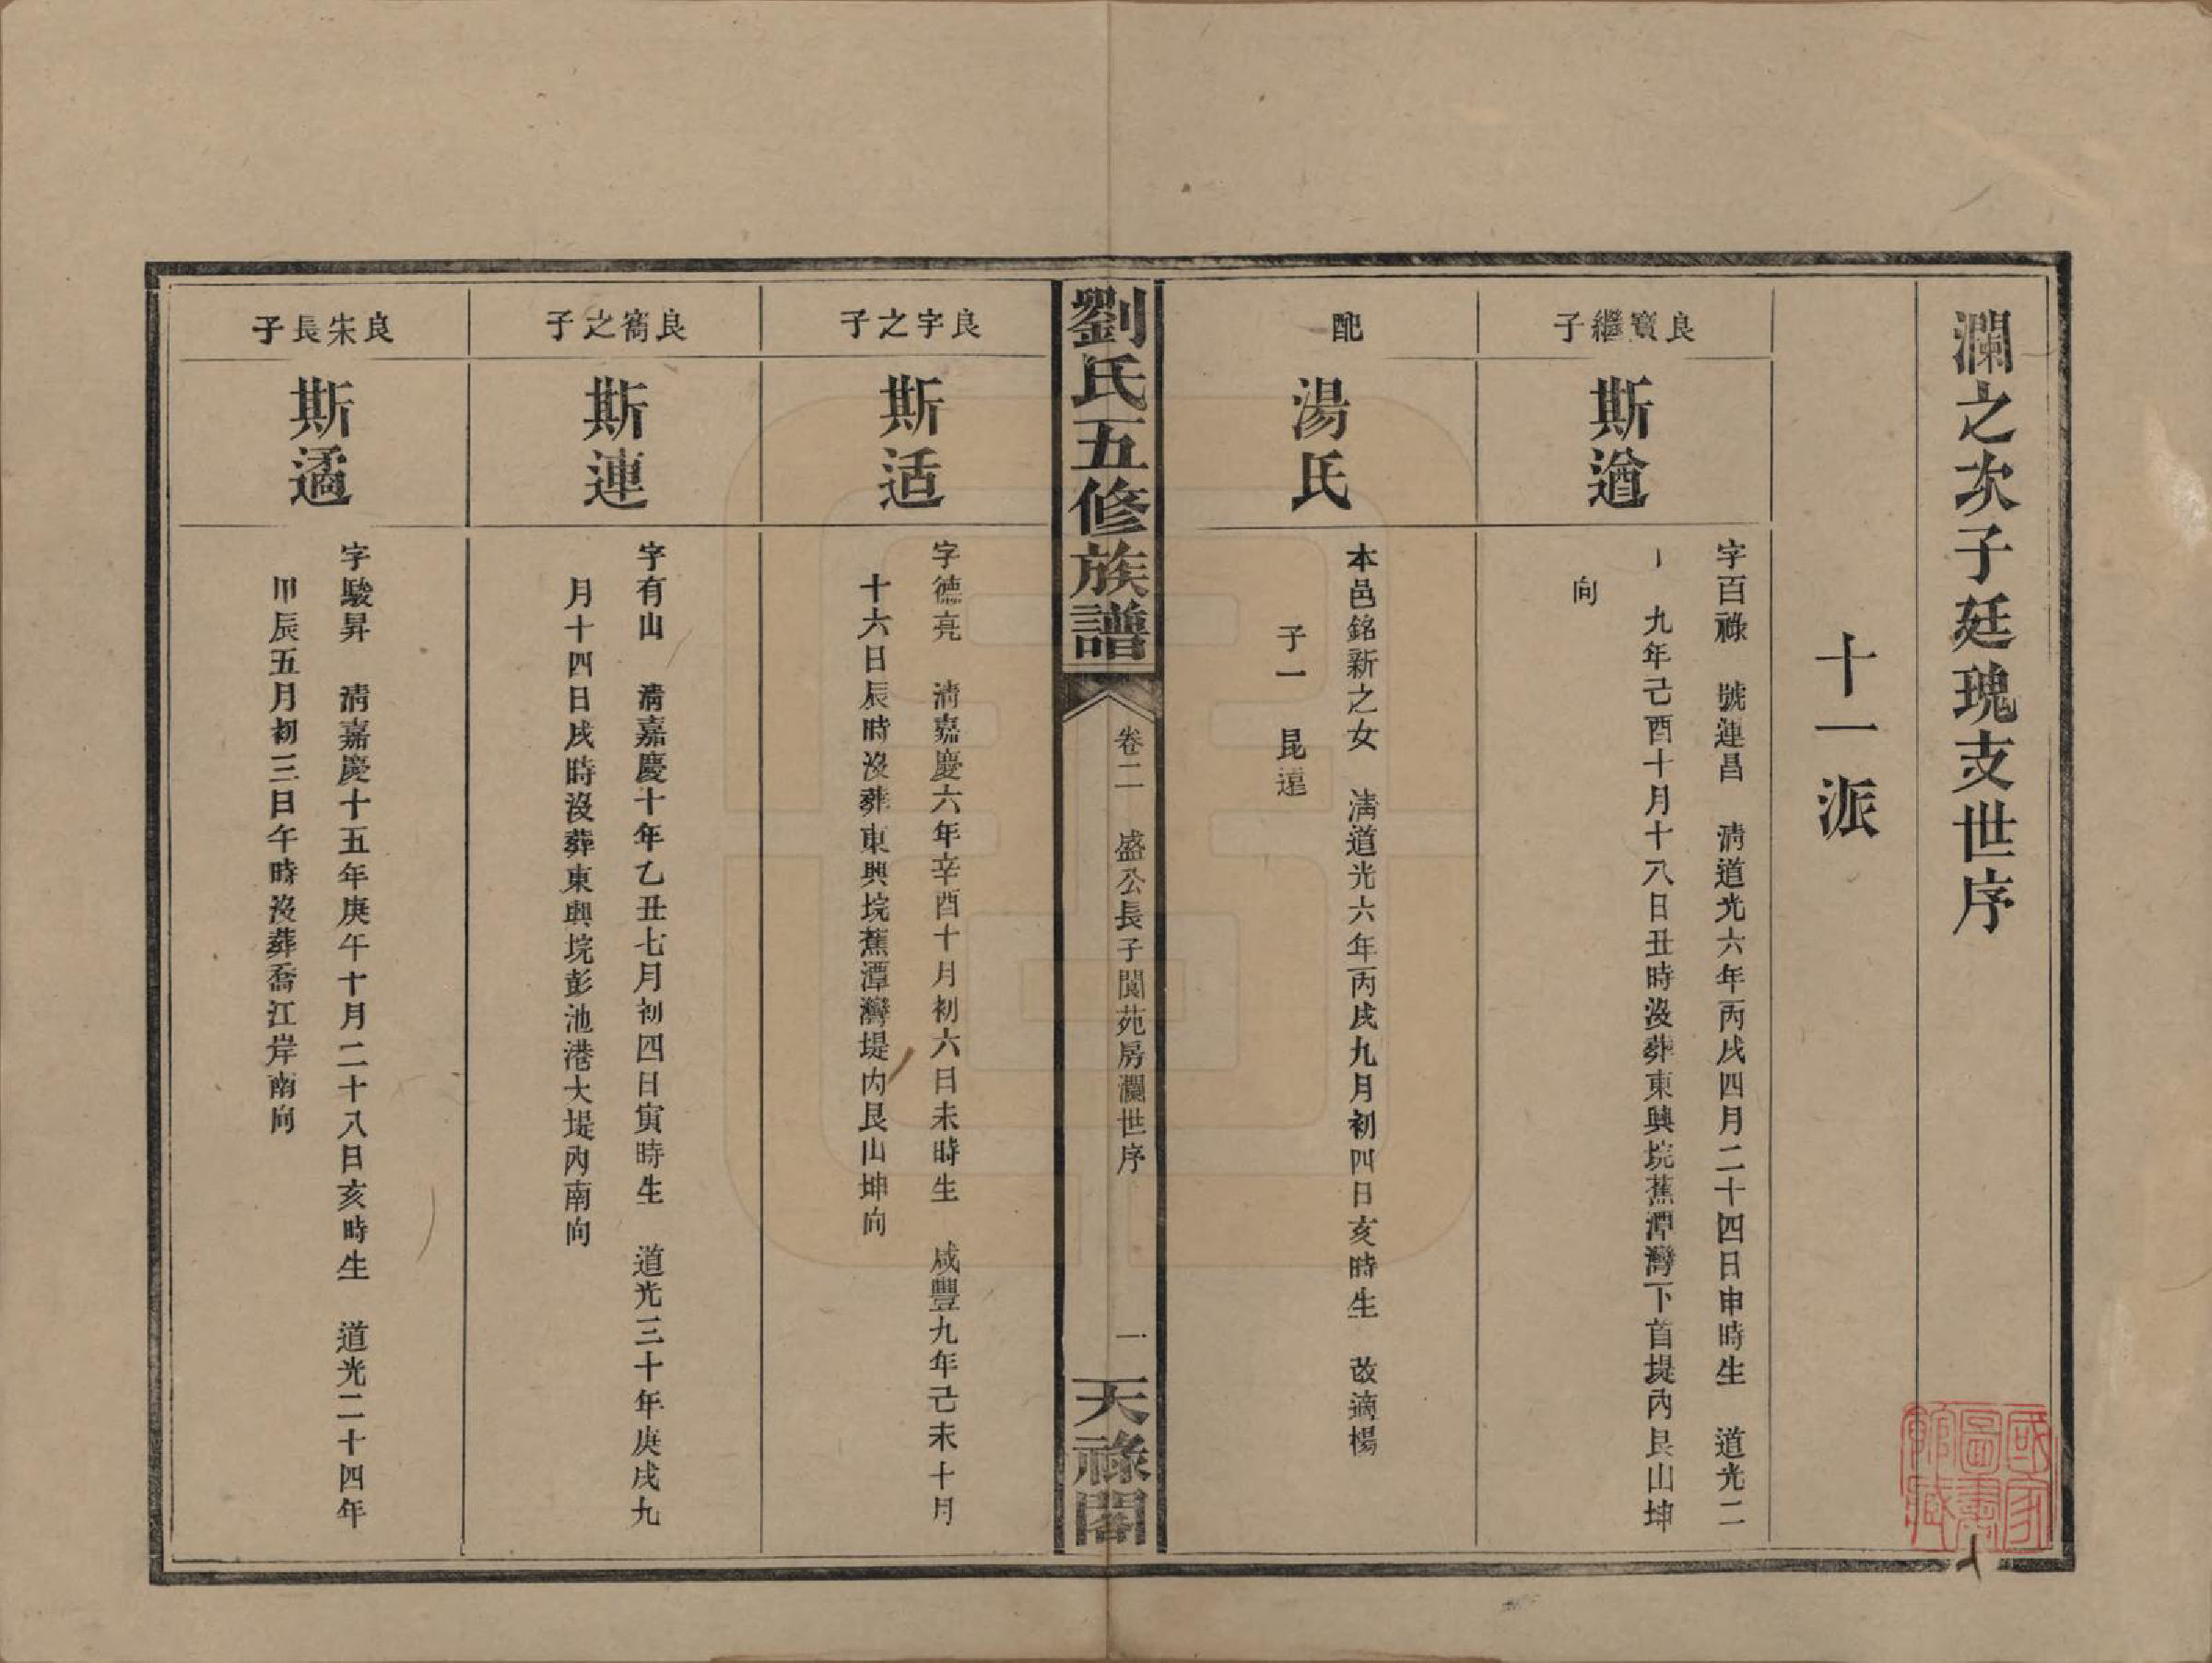 瀾之次子廷瑰支世序
十一派
良寶繼子
斯遒
字百祿　號連昌　清道光六年丙戌四月二十四日申時生　道光二
十九年己酉十月十八日丑時沒葬東興垸蕉潭灣下首堤內艮山坤
向
配
湯氏
本邑銘新之女　清道光六年丙戌九月初四日亥時生　改適楊
子一　昆遠
劉氏五修族譜
卷二　盛公長子閬苑房瀾世序
一
天祿閣
良字之子
斯适
字德亮　清嘉慶六年辛酉十月初六日未時生　咸豐九年己未十月
十六日辰時沒葬東興垸蕉潭灣堤內艮山坤向
良寯之子
斯連
字有山　清嘉慶十年乙丑七月初四日寅時生　道光三十年庚戌九
月十四日戌時沒葬東興垸彭池港大堤內南向
良朱長子
斯遹
字駿昇　清嘉慶十五年庚午十月二十八日亥時生　道光二十四年
甲辰五月初三日午時沒葬喬江岸南向
國家圖書館藏